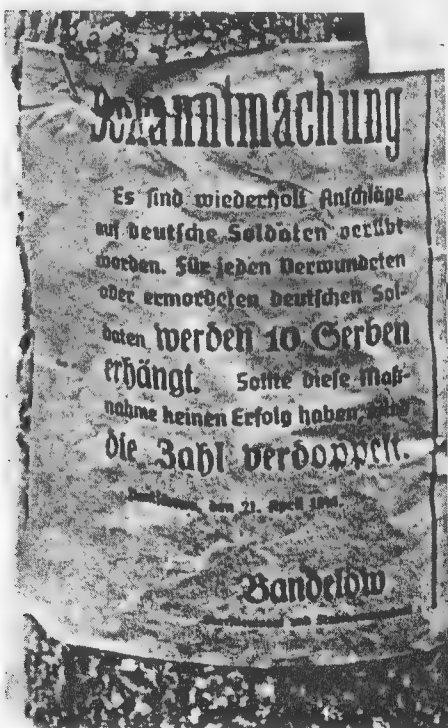 Bekanntmachung
Es sind wiederholt Anschläge
auf deutsche Soldaten verübt
worden. Für jeden Verwundeten
oder ermordeten deutschen Sol-
daten werden 10 Serben
erhängt. Sollte diese Maß-
nahme keinen Erfolg haben wird
die Zahl verdoppelt.
den 21. April
Bandelow